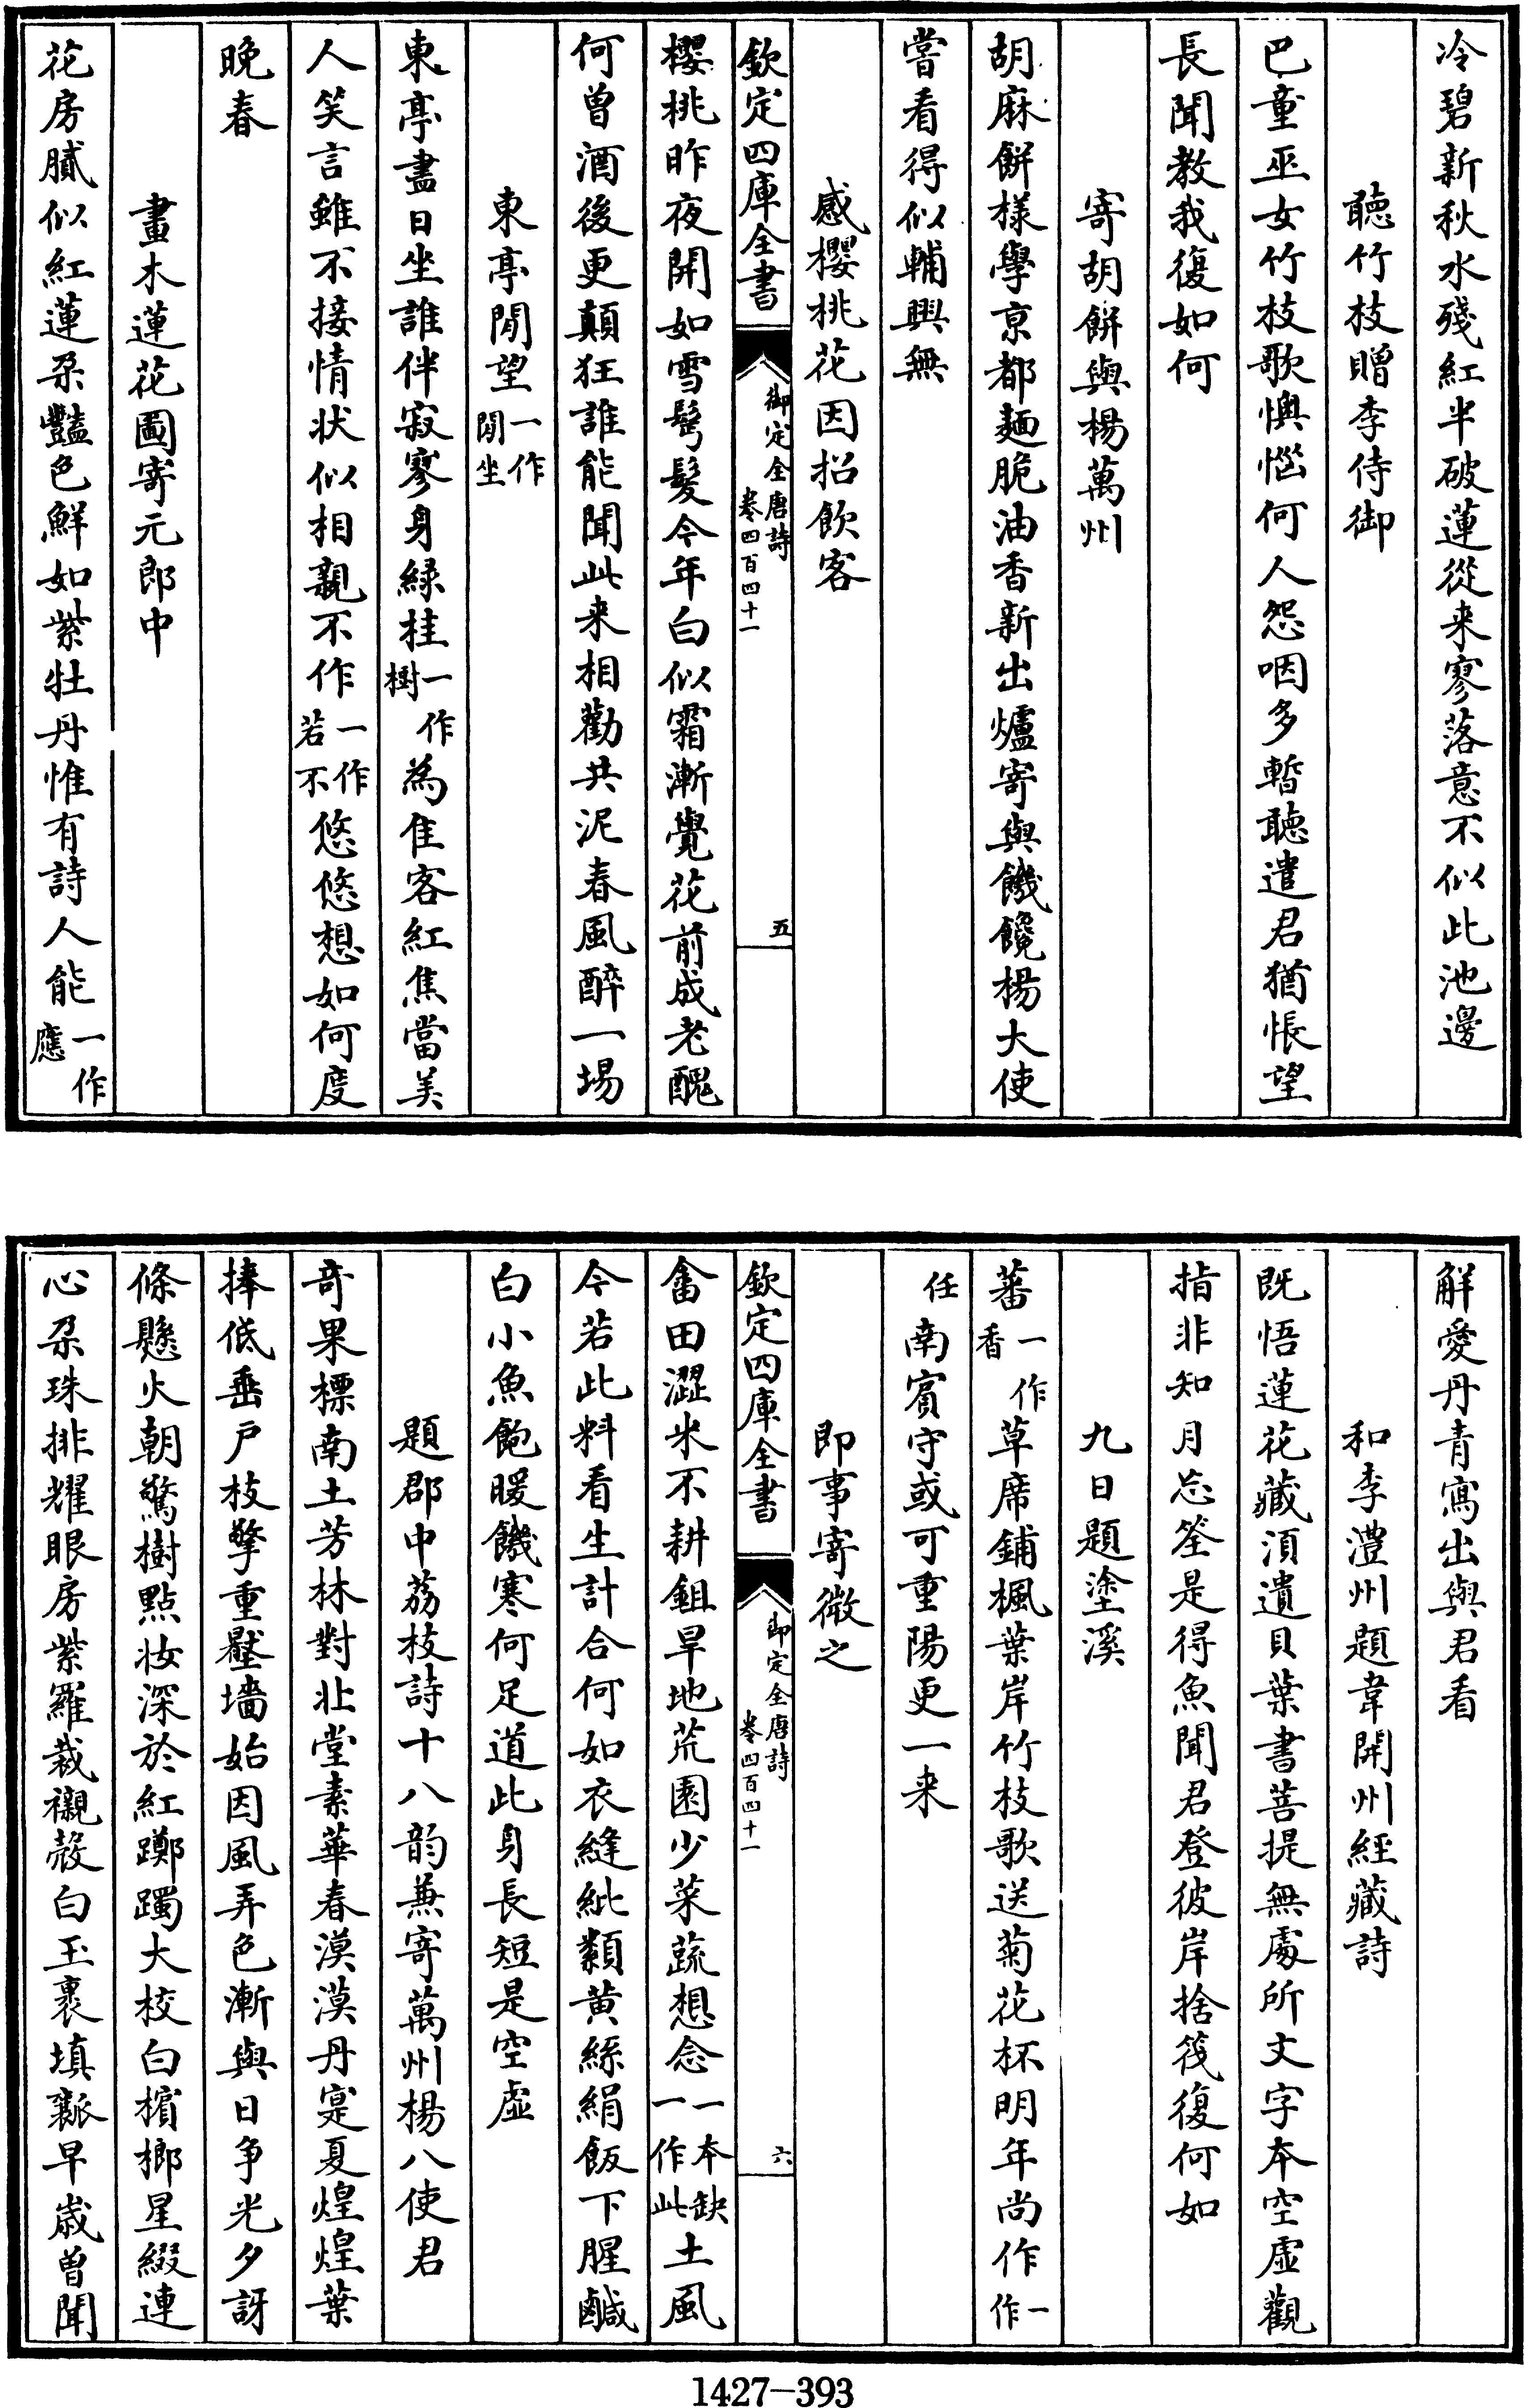 冷碧新秋水殘紅半破蓮從来寥落意不似此池邊
聽竹枝贈李侍御
巴童巫女竹枝歌懊惱何人怨咽多暫聽遣君猶悵望
長聞教我復如何
寄胡餅與楊萬州
胡麻餅樣學京都麵脆油香新出爐寄與饑饞楊大使
嘗看得似輔興無
感櫻桃花因招飲客
欽定四庫全書
御定全唐詩
卷四百四十一
五
櫻桃昨夜開如雪鬓髮今年白似霜漸覺花前成老醜
何曾酒後更顛狂誰能聞此来相勸共泥春風醉一場
東亭閒望一作閒坐
東亭盡日坐誰伴寂寥身緑桂一作樹為佳客紅焦當美
人笑言雖不接情狀似相親不作一作若不悠悠想如何度
晚春
畫木蓮花圖寄元郎中
花房膩似紅蓮朶豔色鮮如紫牡丹惟有詩人能一作應
解愛丹青寫出與君看
和李澧州題韋開州經藏詩
既悟蓮花藏須遺貝葉書菩提無處所文字本空虛觀
指非知月忘筌是得魚聞君登彼岸捨筏復何如
九日題塗溪
蕃一作香草席鋪楓葉岸竹枝歌送菊花杯明年尚作一作
任南賓守或可重陽更一来
即事寄微之
欽定四庫全書
御定全唐詩
卷四百四十一
六
畬田澀米不耕鉏旱地荒園少菜蔬想念一本缺一作此土風
今若此料看生計合何如衣縫紕纇黄絲絹飯下腥鹹
白小魚飽暖饑寒何足道此身長短是空虛
題郡中荔枝詩十八韵兼寄萬州楊八使君
奇果標南土芳林對北堂素華春漠漠丹寔夏煌煌葉
捧低垂戶枝擎重壓墻始因風弄色漸與日争光夕訝
條懸火朝驚樹點妝深於紅躑躅大校白檳榔星綴連
心朶珠排耀眼房紫羅裁襯殼白玉裹填瓤早歲曾聞
1427-393